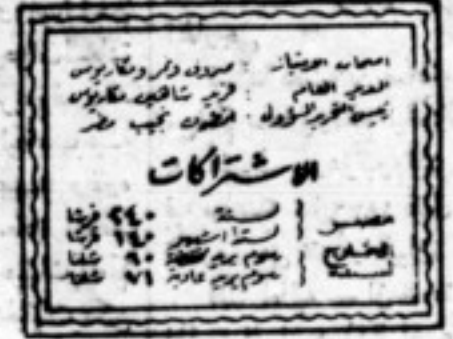 اصحاب الامتياز : صروف ونمر ومكاريوس
المدير العام : فريد شاهين مكاريوس
رئيس التحرير المسؤول : انطون نجيب مطر
الاشتراكات
مصر سنة ٢٤٠ قرشا
ستة اشهر ١٢٥ قرشا
الخارج رسوم بريد ٩٠ شلنا
لسنة رسوم بريد عادية ٩٦ شلنا